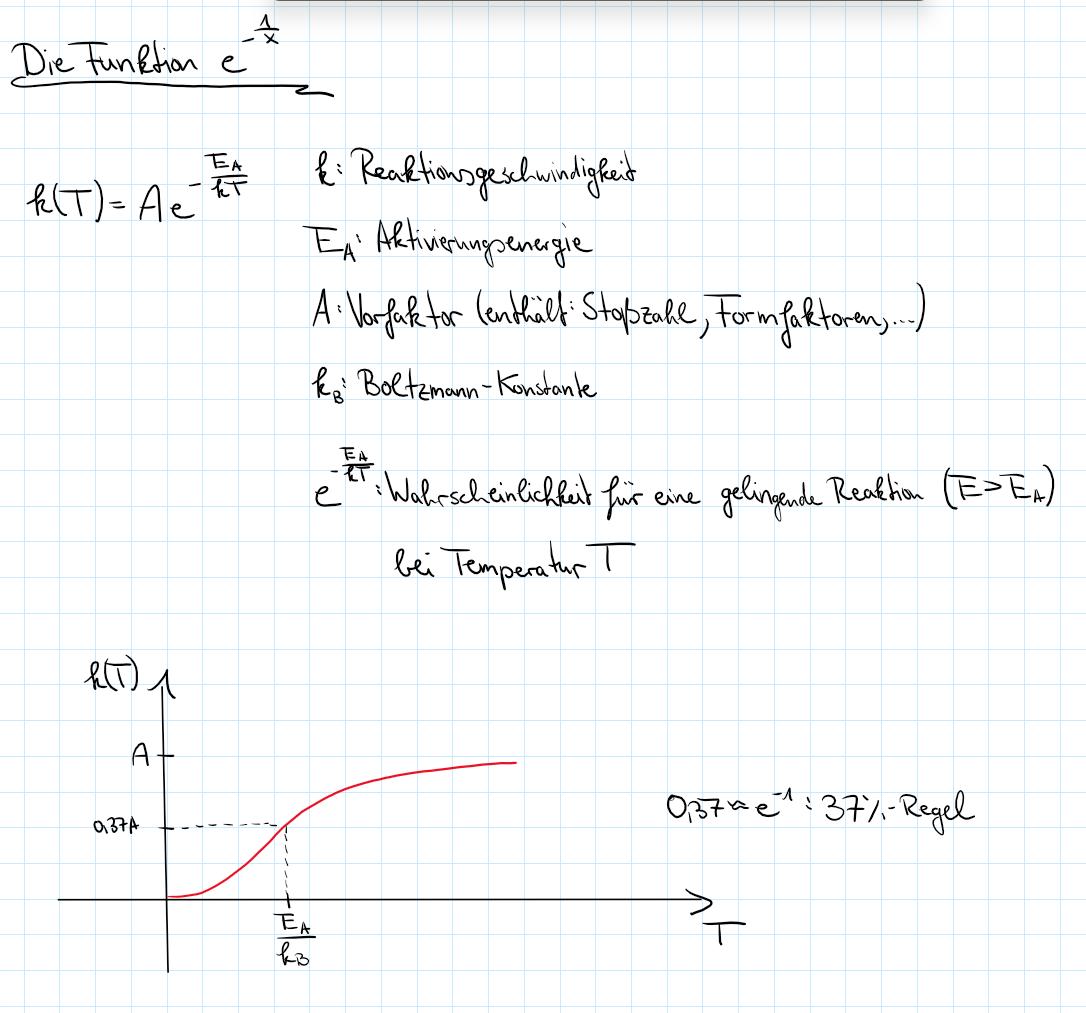 Die Funktion e^{-\frac{1}{x}}
k(T) = A e^{-\frac{E_A}{kT}}
k: Reaktionsgeschwindigkeit
E_A: Aktivierungsenergie
A: Vorfaktor (enthält: Stoßzahl, Formfaktoren, ...)
k_B: Boltzmann-Konstante
e^{-\frac{E_A}{kT}}: Wahrscheinlichkeit für eine gelingende Reaktion (E > E_A)
bei Temperatur T
k(T)
A
0,37A
0,37 ≈ e^{-1} : 37%-Regel
\frac{E_A}{k_B}
T